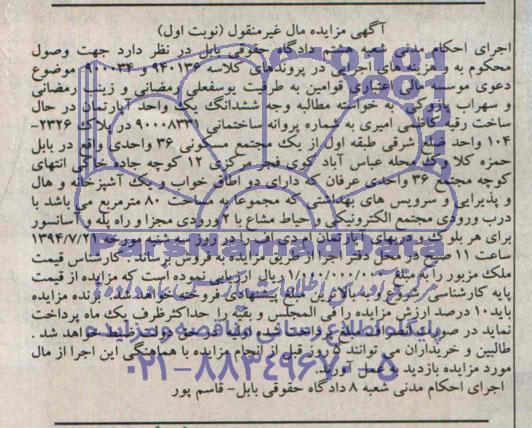 آگهی مزایده مال غیرمنقول (نوبت اول)
اجرای احکام مدنی شعبه هشتم دادگاه حقوقی بابل در نظر دارد جهت وصول
محکوم به و هزینه های اجرایی در پروندهای کلاسه ۹۴۰۱۳۶ و ۹۰۰۰۳۴ موضوع
دعوی موسسه مالی اعتباری قوامین به طرفیت یوسفعلی رمضانی و زینب رمضانی
و سهراب به خواسته مطالبه وجه ششدانگ یک واحد آپارتمان در حال
ساخت رقیه امیری به شماره پروانه ساختمانی ۹۰۰۰۸۳۳۱ در پلاک ۲۳۲۶-
۱۰۴ واحد ضلع شرقی طبقه اول از یک مجتمع مسکونی ۳۶ واحدی واقع در بابل
حمزه کلا محله عباس آباد کوی فجر مرکزی ۱۲ کوچه جاده خاکی انتهای
کوچه مجتمع ۳۶ واحدی عرفان که دارای دو اطاق خواب و یک آشپزخانه و هال
و پذیرایی و سرویس های بهداشتی که مجموعا به مساحت ۸۰ مترمربع می باشد با
درب ورودی مجتمع الکترونیکی و حیاط مشاع با ۲ ورودی مجزا و راه پله و آسانسور
برای هر بلوک و دربهای آپارتمان ام دی اف را در روز سه شنبه مورخه ۱۳۹۴/۷/۲۱
ساعت ۱۱ صبح در محل دفتر اجرا از طریق مزایده به فروش برساند. کارشناس قیمت
ملک مزبور را به مبلغ ۱/۱۰۰/۰۰۰/۰۰۰ ریال ارزیابی نموده است که مزایده از قیمت
پایه کارشناسی شروع و به بالاترین مبلغ پیشنهادی فروخته خواهد شد. برنده مزایده
باید ۱۰ درصد ارزش مزایده را فی المجلس و بقیه را حداکثر ظرف یک ماه پرداخت
نماید در صورت خواهد شد.
طالبین و خریداران می توانند ۵ روز قبل از انجام مزایده با هماهنگی این اجرا از مال
مورد مزایده بازدید به عمل آورند.
اجرای احکام مدنی شعبه ۸ دادگاه حقوقی بابل- قاسم پور
ParsNamadData
پایگاه اطلاع رسانی مناقصه و مزایده
۰۲۱-۸۸۳۴۹۶۷۰-۵